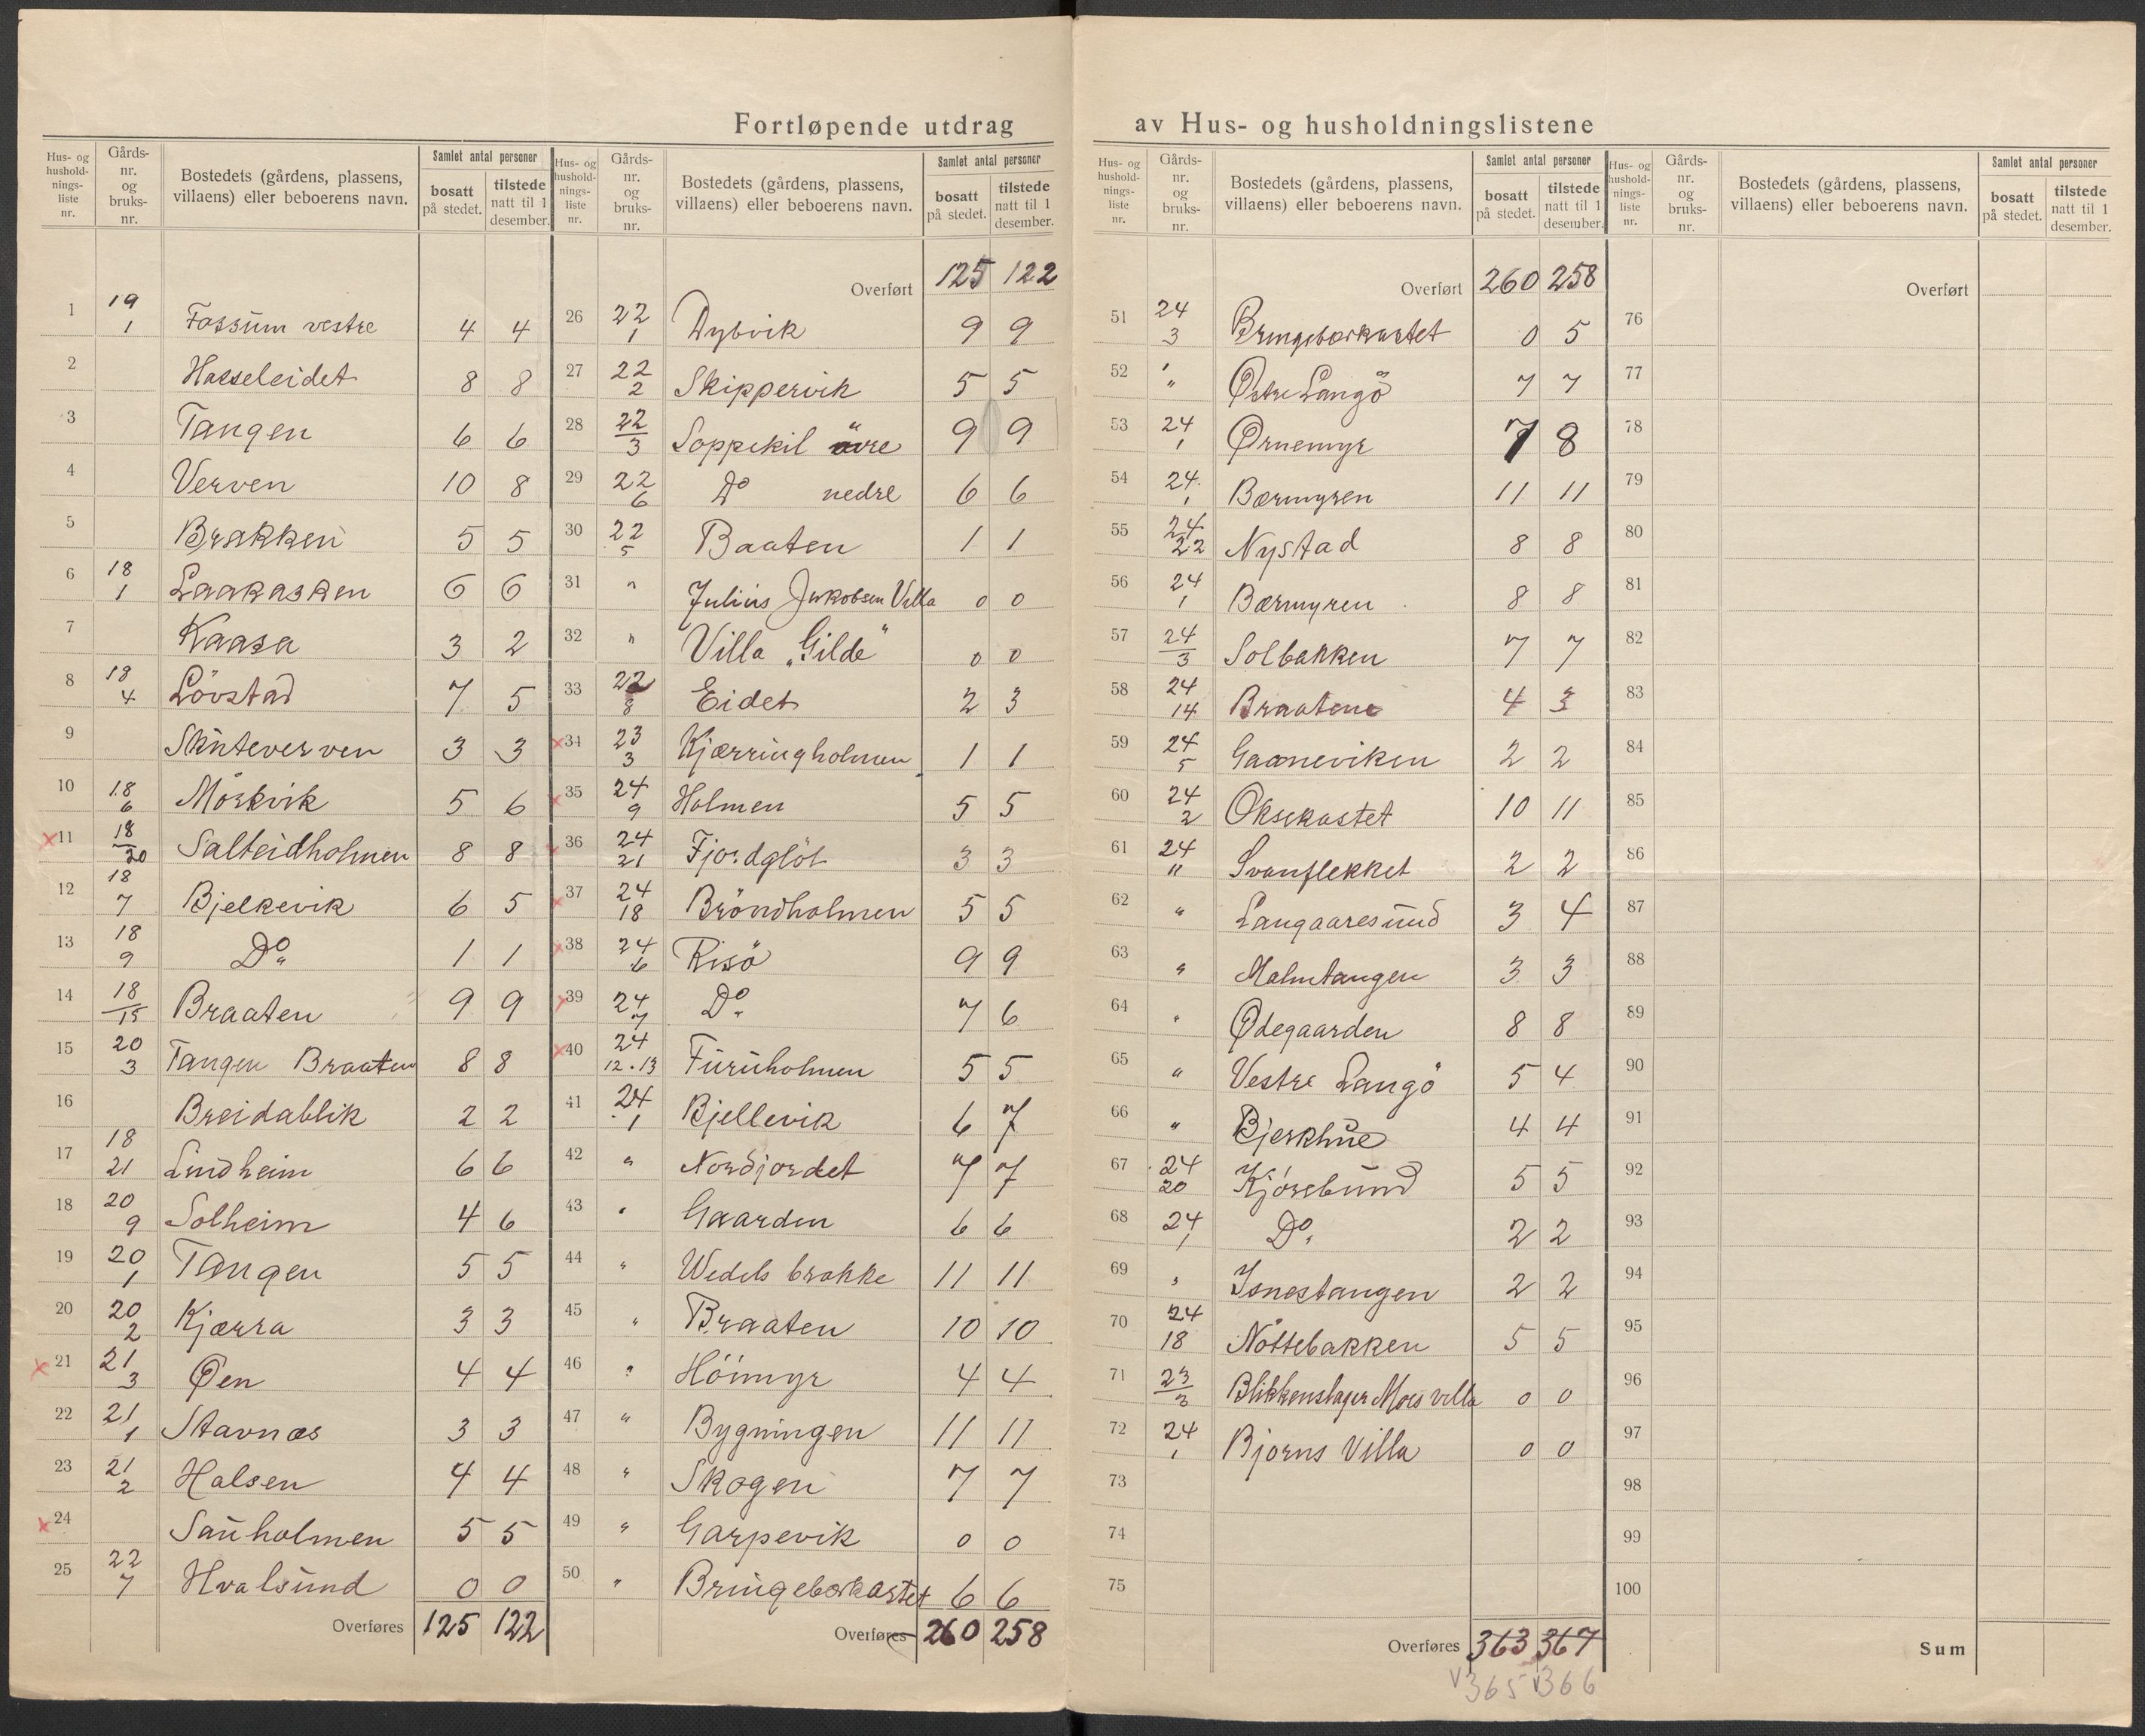 Fortløpende utdrag av Hus- og husholdningslistene
Hus- og hushold-nings-liste nr. | Gårds-nr. og bruks-nr. | Bostedets (gårdens, plassens, villaens) eller beboerens navn. | Samlet antal personer | bosatt på stedet. | tilstede natt til 1 desember.
1 19/1 Fossum vestre 4 4
2 Hasseleidet 8 8
3 Tangen 6 6
4 Verven 10 8
5 Brakken 5 5
6 18/1 Laakasken 6 6
7 Kaasa 3 2
8 18/4 Lövstad 7 5
9 Skuteverven 3 3
10 18/6 Mörkvik 5 6
x 11 18/20 Salteidholmen 8 8
12 18/7 Bjelkevik 6 5
13 18/9 Do 1 1
14 18/15 Braaten 9 9
15 20/3 Tangen Braaten 8 8
16 Breidablik 2 2
17 18/21 Lindheim 6 6
18 20/9 Solheim 4 6
19 20/1 Tangen 5 5
20 20/2 Kjærra 3 3
x 21 21/3 Øen 4 4
22 21/1 Stavnæs 3 3
23 21/2 Halsen 4 4
x 24 Sauholmen 5 5
25 22/7 Hvalsund 0 0
Overføres 125 122
Hus- og hushold-nings-liste nr. | Gårds-nr. og bruks-nr. | Bostedets (gårdens, plassens, villaens) eller beboerens navn. | Samlet antal personer | bosatt på stedet. | tilstede natt til 1 desember.
Overført 125 122
26 22/1 Dybvik 9 9
27 22/2 Skippervik 5 5
28 22/3 Soppekil övre 9 9
29 22/6 Do nedre 6 6
30 22/5 Baaten 1 1
31 " Julius Jakobsen Villa 0 0
32 " Villa „Gilde" 0 0
33 22/8 Eidet 2 3
x 34 23/3 Kjærringholmen 1 1
x 35 24/9 Holmen 5 5
x 36 24/21 Fjordglöt 3 3
x 37 24/18 Bröndholmen 5 5
x 38 24/6 Risö 9 9
x 39 24/7 Do 7 6
x 40 24/12.13 Furuholmen 5 5
41 24/1 Bjellevik 6 7
42 " Nordjordet 7 7
43 " Gaarden 6 6
44 " Wedels brakke 11 11
45 " Braaten 10 10
46 " Höimyr 4 4
47 " Bygningen 11 11
48 " Skogen 7 7
49 " Garpevik 0 0
50 " Bringebærkastet 6 6
Overføres 260 258
Hus- og hushold-nings-liste nr. | Gårds-nr. og bruks-nr. | Bostedets (gårdens, plassens, villaens) eller beboerens navn. | Samlet antal personer | bosatt på stedet. | tilstede natt til 1 desember.
Overført 260 258
51 24/3 Bringebærkastet 0 5
52 " Østre Langö 7 7
53 24/1 Ørnemyr 7 8
54 24/1 Bærmyren 11 11
55 24/22 Nystad 8 8
56 24/1 Bærmyren 8 8
57 24/3 Solbakken 7 7
58 24/14 Braatene 4 3
59 24/5 Gaaneviken 2 2
60 24/2 Oksekastet 10 11
61 24/11 Svanflekket 2 2
62 " Langaaresund 3 4
63 " Malmtangen 3 3
64 " Ødegaarden 8 8
65 " Vestre Langö 5 4
66 " Bjerkhue 4 4
67 24/20 Kjörsbund 5 5
68 24/1 Do 2 2
69 " Isnestangen 2 2
70 24/18 Nöttebakken 5 5
71 23/3 Blikkenslager Moes villa 0 0
72 24/1 Bjorns Villa 0 0
73
74
75
Overføres 363 367
v 365 v 366
Hus- og hushold-nings-liste nr. | Gårds-nr. og bruks-nr. | Bostedets (gårdens, plassens, villaens) eller beboerens navn. | Samlet antal personer | bosatt på stedet. | tilstede natt til 1 desember.
Overført
76
77
78
79
80
81
82
83
84
85
86
87
88
89
90
91
92
93
94
95
96
97
98
99
100
Sum